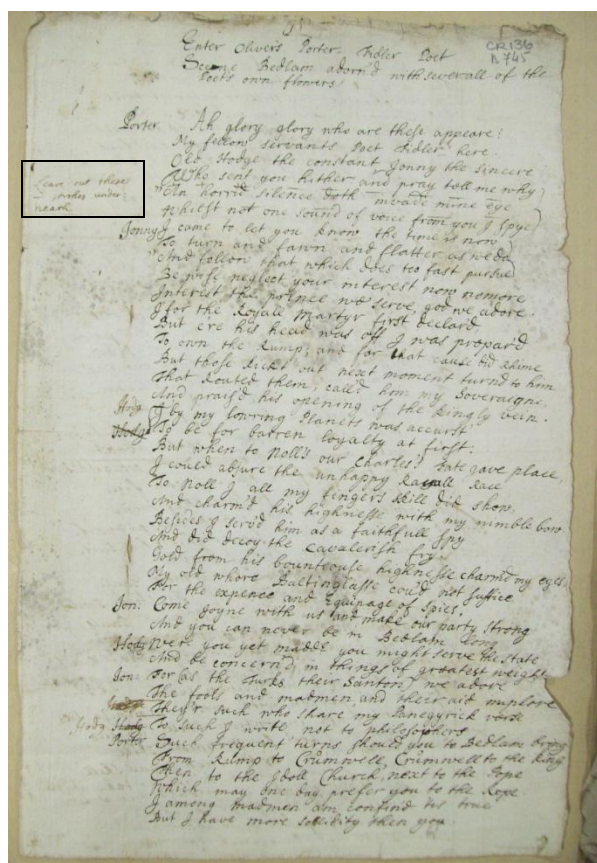 Enter Olivers Porter, Fidler Poet
CR136
B 745
Sceene Bedlam adorn'd with severall of the
Poets own flowers
Porter Ah glory glory who are these appeare:
My fellow servants Poet Fidler here.
Old Hodge the constant Jonny the sincere
Who sent you hither and pray tell me why
In horrid silence doth invade mine eye
Leave out these
strokes under:
neath
Whilst not one sound of voice from you I spye
Jonny I came to let you know the time is now
To turn and fawn and flatter as we do
And follow that which does too fast pursue
Be wise neglect your interest now nomore
Interest the prince we serve, god we adore.
I for the Royall Martyr first declard
But ere his head was off I was prepard
To own the Rump, and for that cause did rhime
But those kickt out next moment turnd to him
That routed them, call'd him my Soveraigne
And prais'd his opening of the kingly vein.
Hodg I by my lowring Planets was accurst
Hodg To be for barren loyalty at first.
But when to Noll's our Charles' fate gave place,
I could abjure the unhappy Royall Race
To Noll I all my fingers skill did show,
And charm'd his highnesse with my nimble bow.
Besides I serv'd him as a faithfull Spy
And did decoy the Cavalerish fry
Gold from his bounteouse highnesse charm'd my eyes,
My old whore Baltinglasse could not suffice
For the expence and equipage of Spies.
Jon: Come joyne with us and make our party strong
And you can never be in Bedlam long
Hodg Were you yet madde you might serve the State
And be concern'd in things of greatest weight
Jon: For as the Turks their Santons we adore
The fools and madmen and their aid implore
They'r such who share my Panegyrick verse
Hodg To such I write not to philosophers
Porter Such frequent turns should you to Bedlam bring
From Rump to Crumwell, Crumwell to the King
Then to the Idoll Church, next to the Pope
Which may one day prefer you to the Rope
I among madmen am confind tis true
But I have more sollidity then you